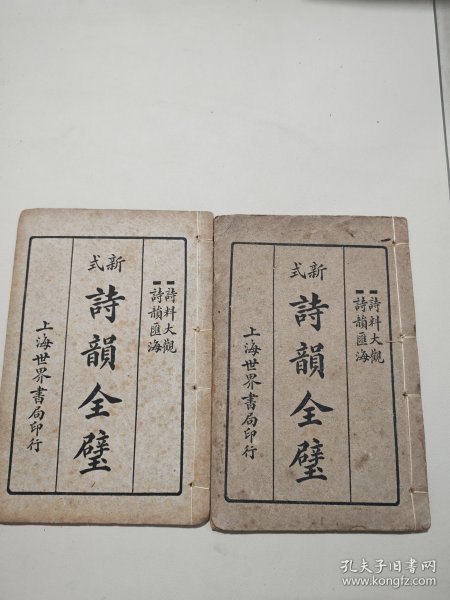 詩料大觀
詩韻匯海
新式
詩韻全璧
上海世界書局印行
詩料大觀
詩韻匯海
新式
詩韻全璧
上海世界書局印行
孔夫子旧书网
www.kongfz.com